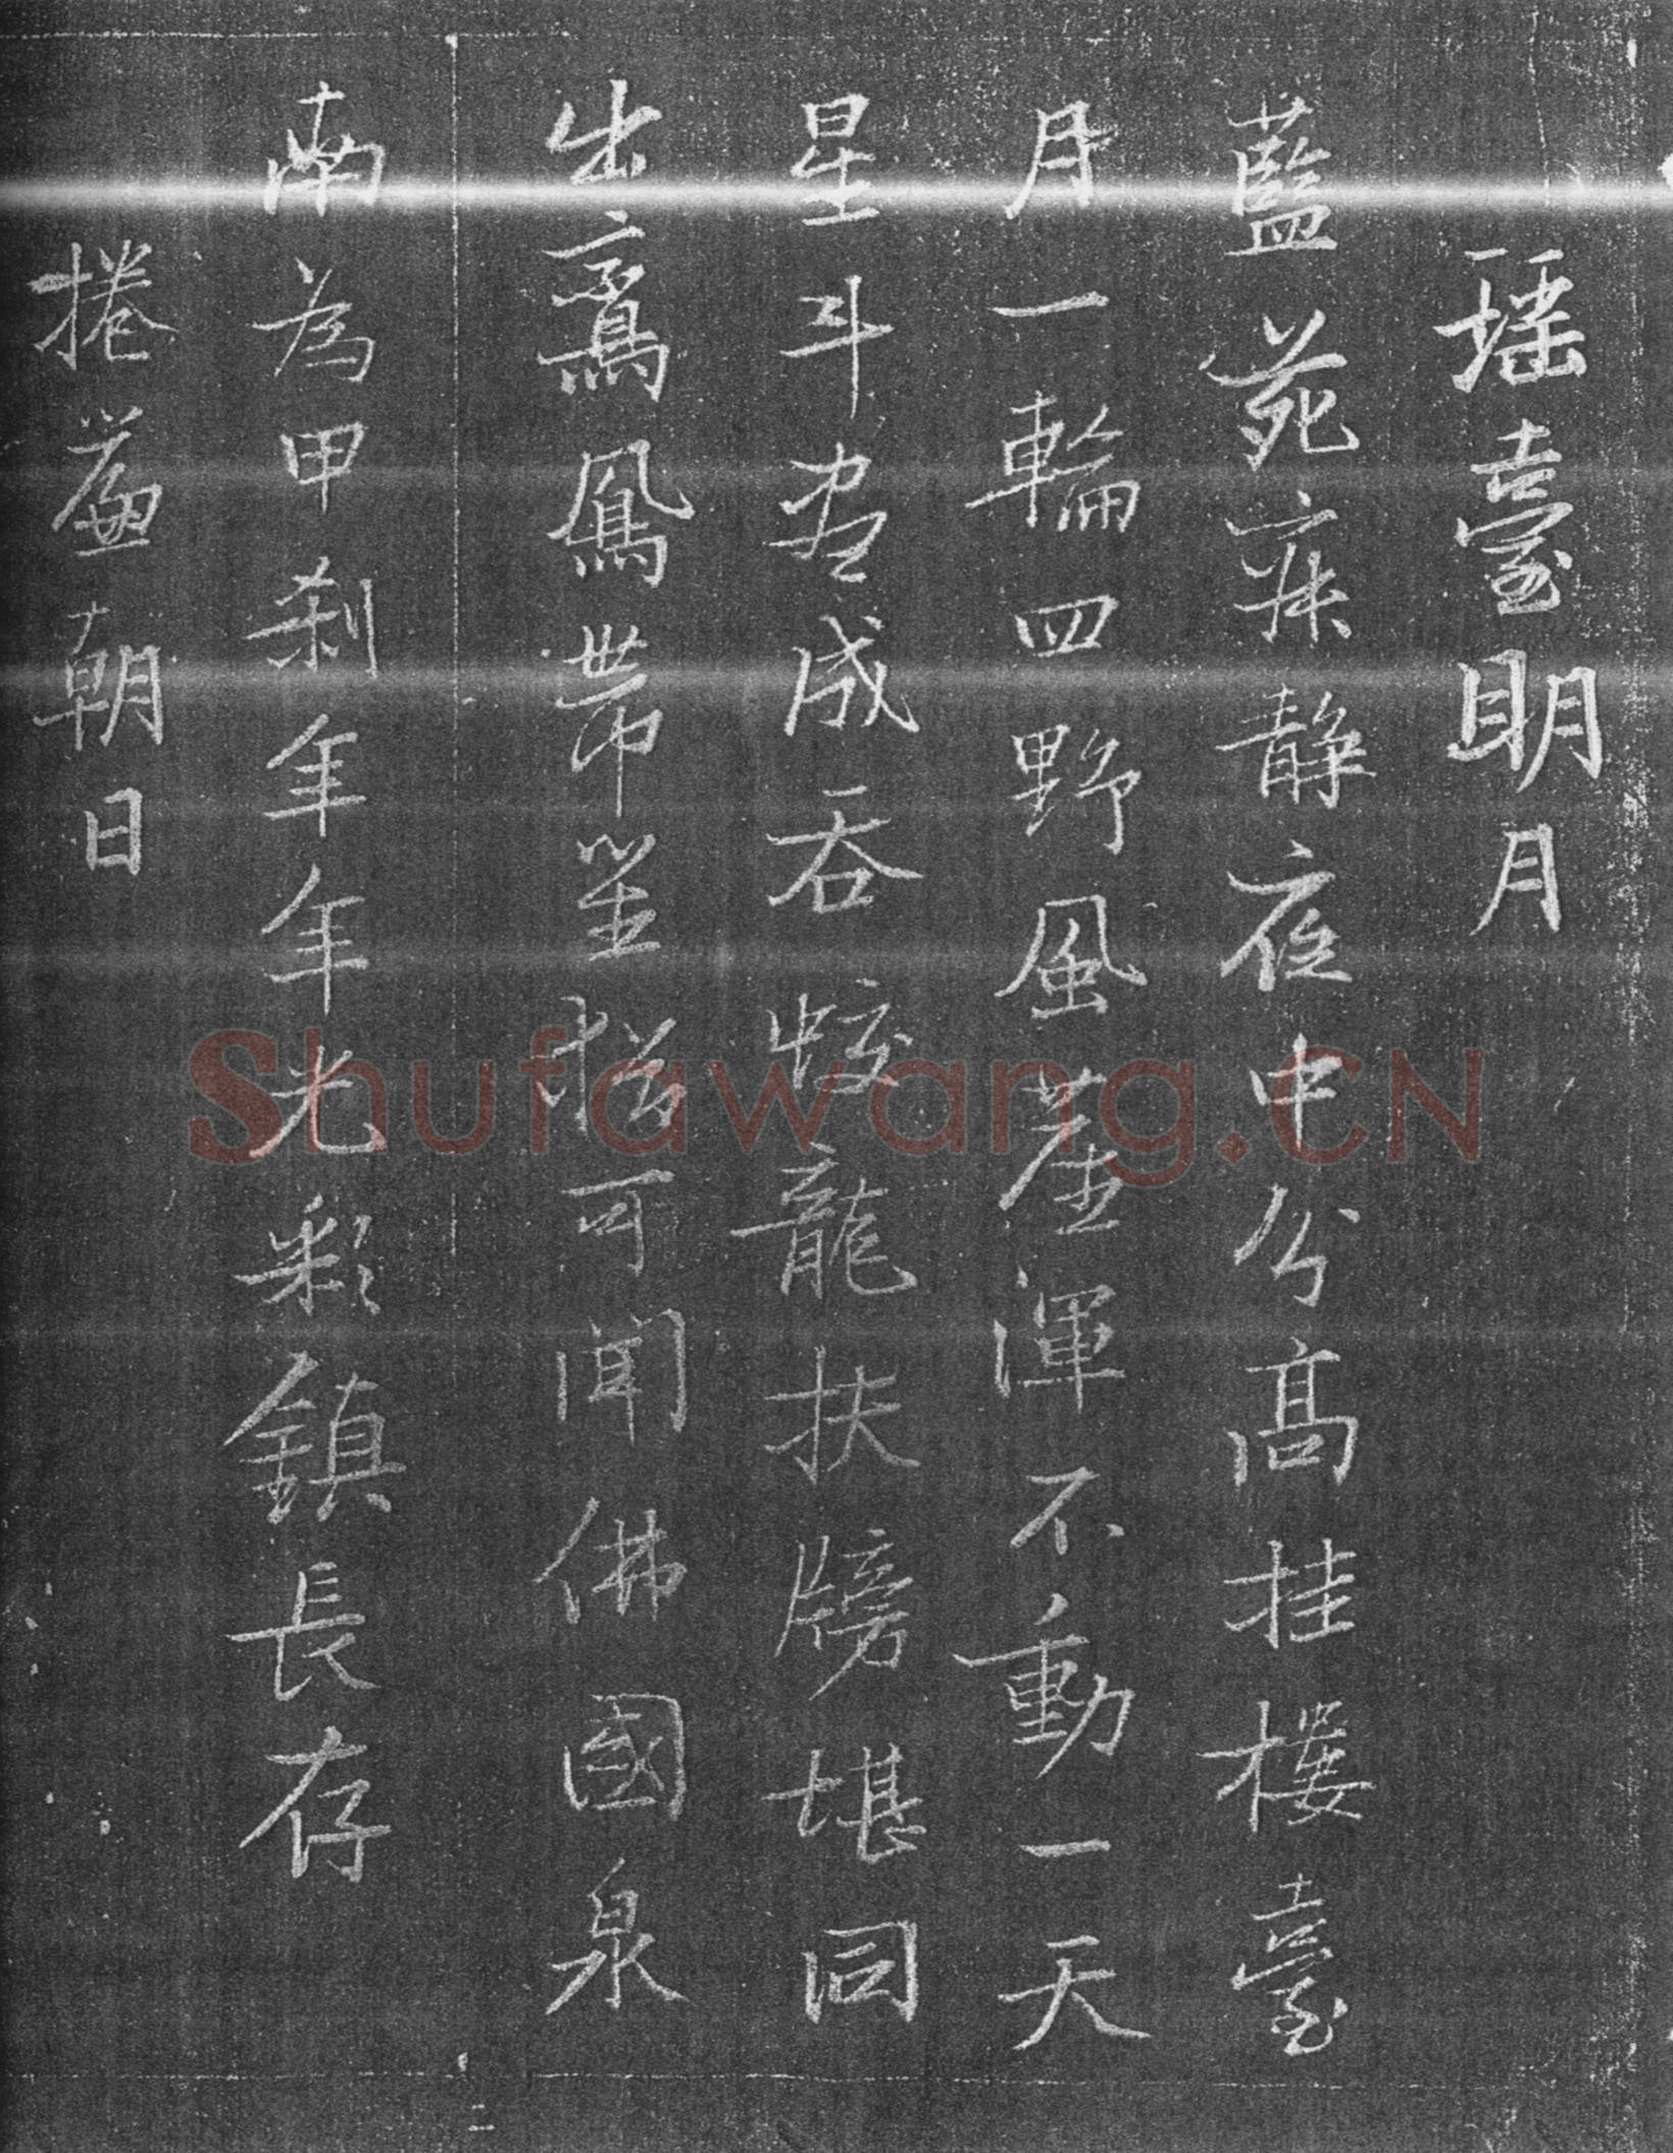 瑤臺明月
藍苑寂靜夜中分高挂樓臺
月一輪四野風塵渾不動一天
星斗盡成吞蛟龍扶牓堪同
出鸞鳳帶笙猶可聞佛國泉
南為甲刹年年光彩鎮長存
捲簾朝日
Shufawang.CN